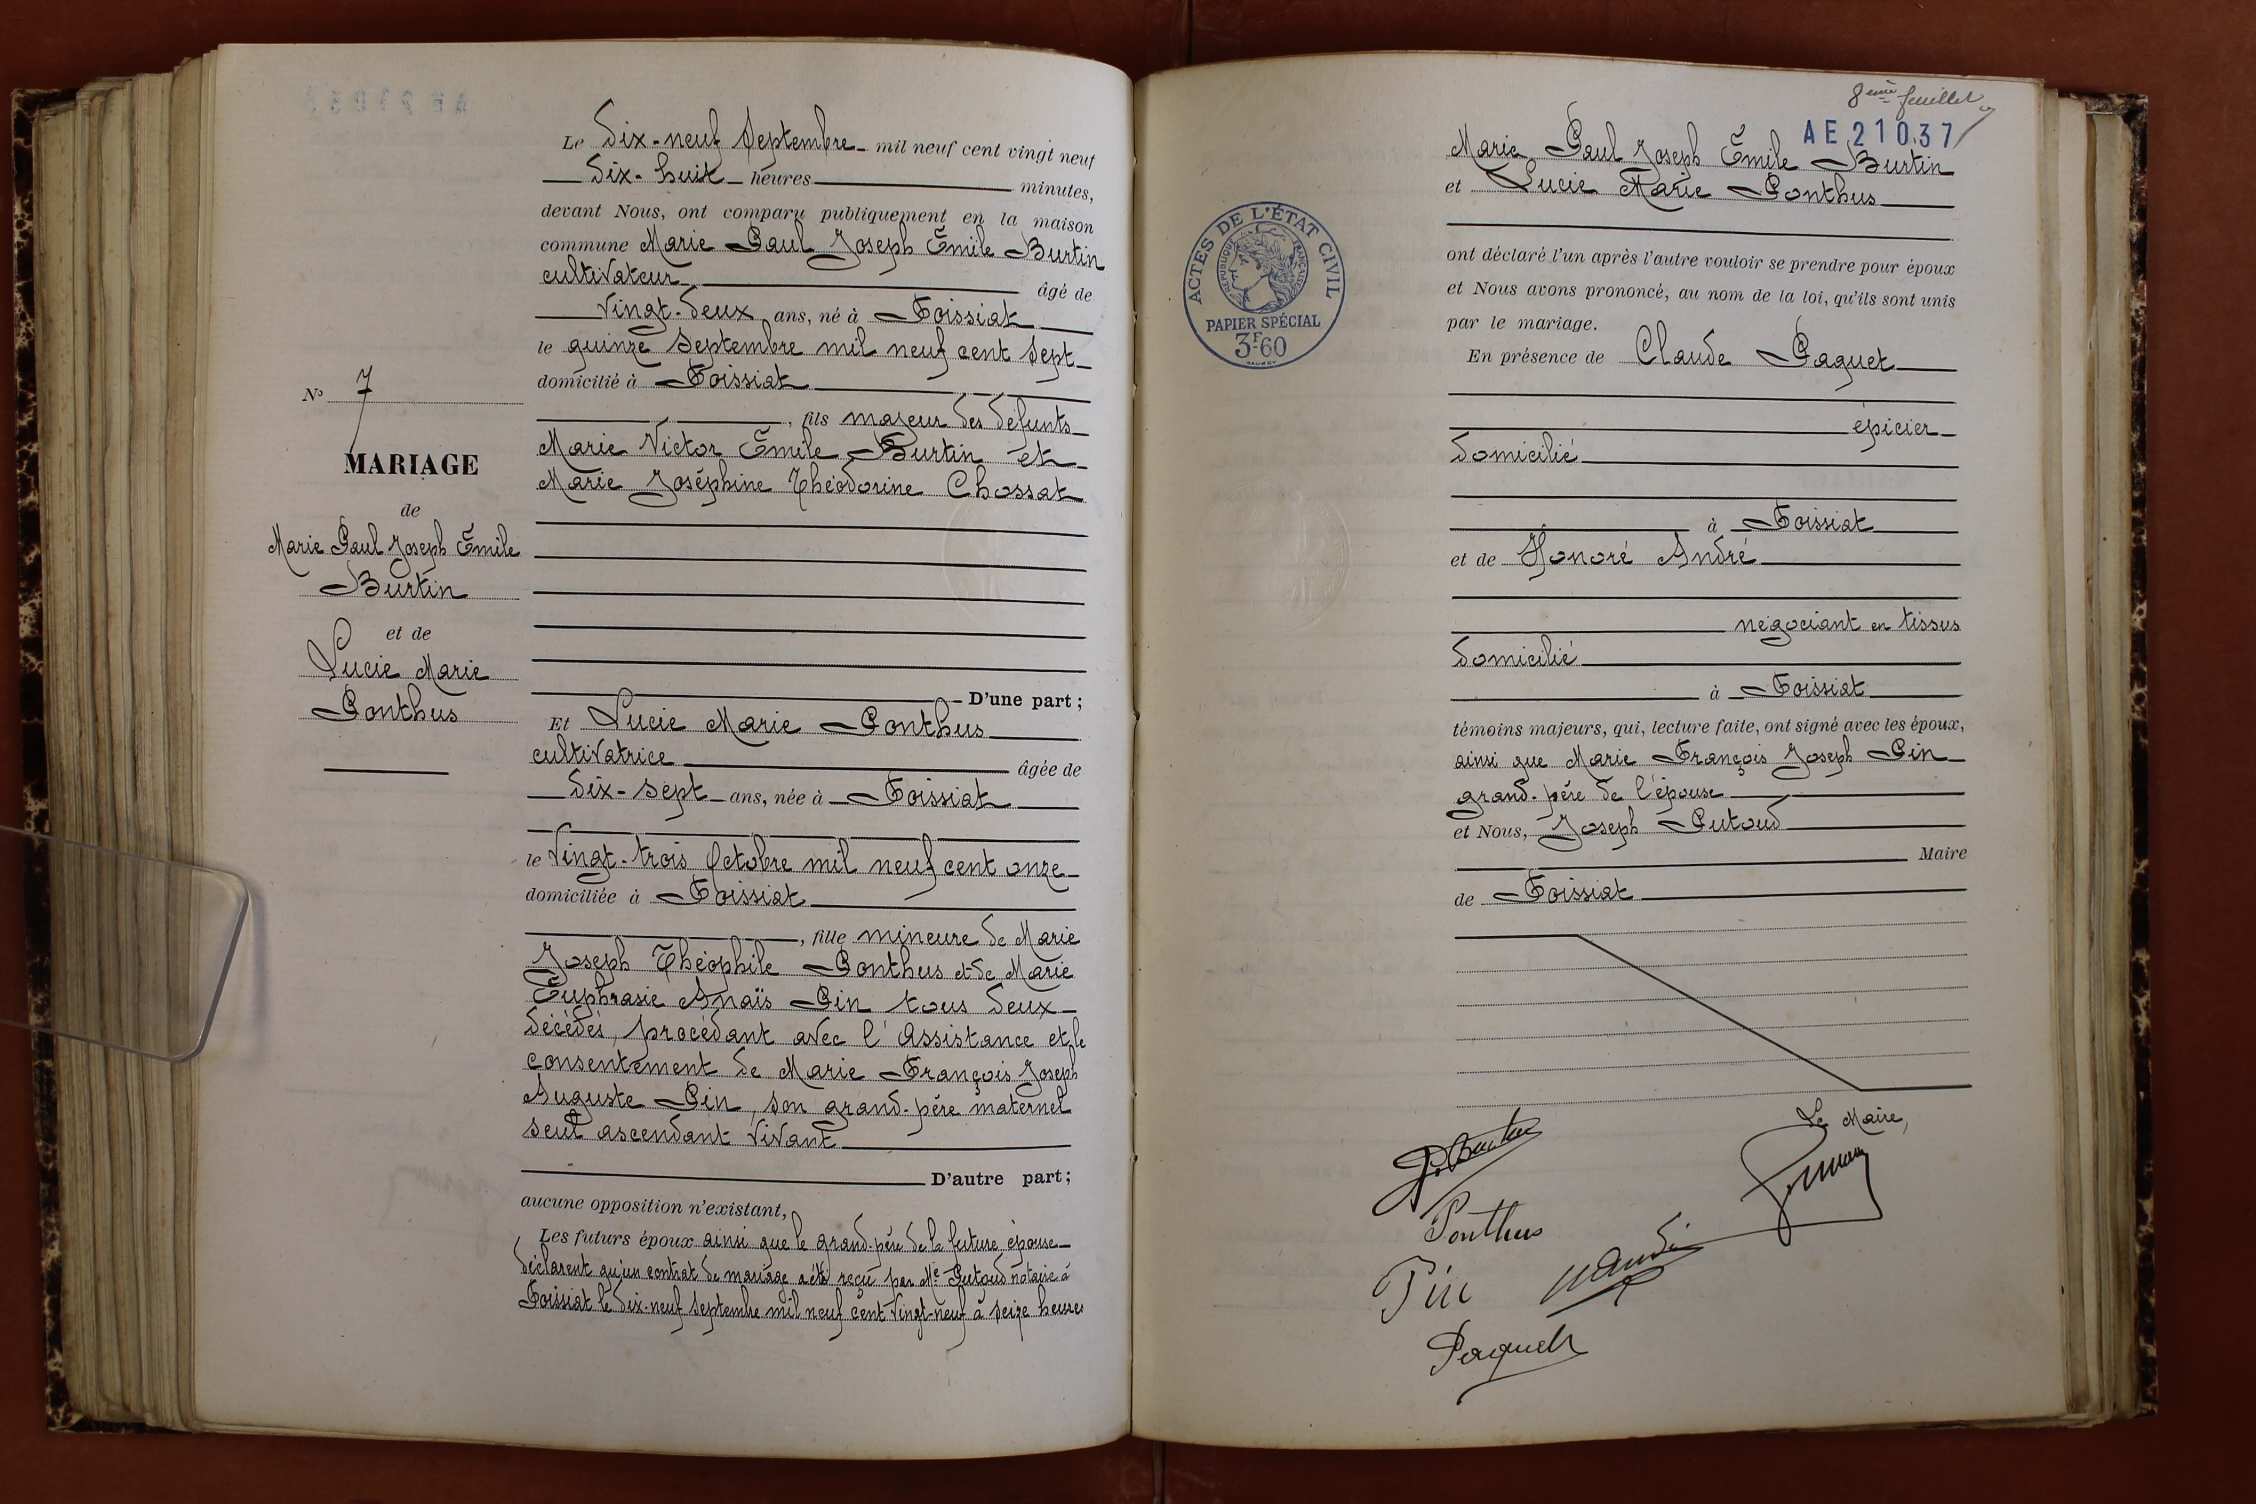 Le Dix-neuf Septembre mil neuf cent vingt neuf
Dix-huit heures minutes,
devant Nous, ont comparu publiquement en la maison
commune Marie Paul Joseph Emile Burtin
cultivateur âgé de
vingt-deux ans, né à Foissiat
le quinze Septembre mil neuf cent sept
domicilié à Foissiat
, fils majeur des défunts
Marie Victor Emile Burtin et
Marie Joséphine Théodorine Chossat
D'une part ;
Et Lucie Marie Ponthus
cultivatrice âgée de
Dix-sept ans, née à Foissiat
le Vingt-trois Octobre mil neuf cent onze
domiciliée à Foissiat
, fille mineure de Marie
Joseph Théophile Ponthus et de Marie
Euphrasie Anaïs Pin tous deux
décédés, procédant avec l'Assistance et le
consentement de Marie François Joseph
Auguste Pin, son grand-père maternel
seul ascendant vivant
D'autre part ;
aucune opposition n'existant,
Les futurs époux ainsi que le grand-père de la future épouse
déclarent qu'un contrat de mariage a été reçu par Me Putoud notaire à
Foissiat le Dix-neuf Septembre mil neuf cent vingt-neuf à seize heures
No 7
MARIAGE
de
Marie Paul Joseph Emile
Burtin
et de
Lucie Marie
Ponthus
8eme feuillet
AE21037
Marie Paul Joseph Emile Burtin
et Lucie Marie Ponthus
ACTES DE L'ÉTAT CIVIL
RÉPUBLIQUE FRANÇAISE
PAPIER SPÉCIAL
3F60
ont déclaré l'un après l'autre vouloir se prendre pour époux
et Nous avons prononcé, au nom de la loi, qu'ils sont unis
par le mariage.
En présence de Claude Paquet
épicier
domicilié
à Foissiat
et de Honoré André
négociant en tissus
domicilié
à Foissiat
témoins majeurs, qui, lecture faite, ont signé avec les époux,
ainsi que Marie François Joseph Pin
grand-père de l'épouse
et Nous, Joseph Putoud
Maire
de Foissiat
Le Maire,
P. Burtin
Ponthus
Pin
Paquet